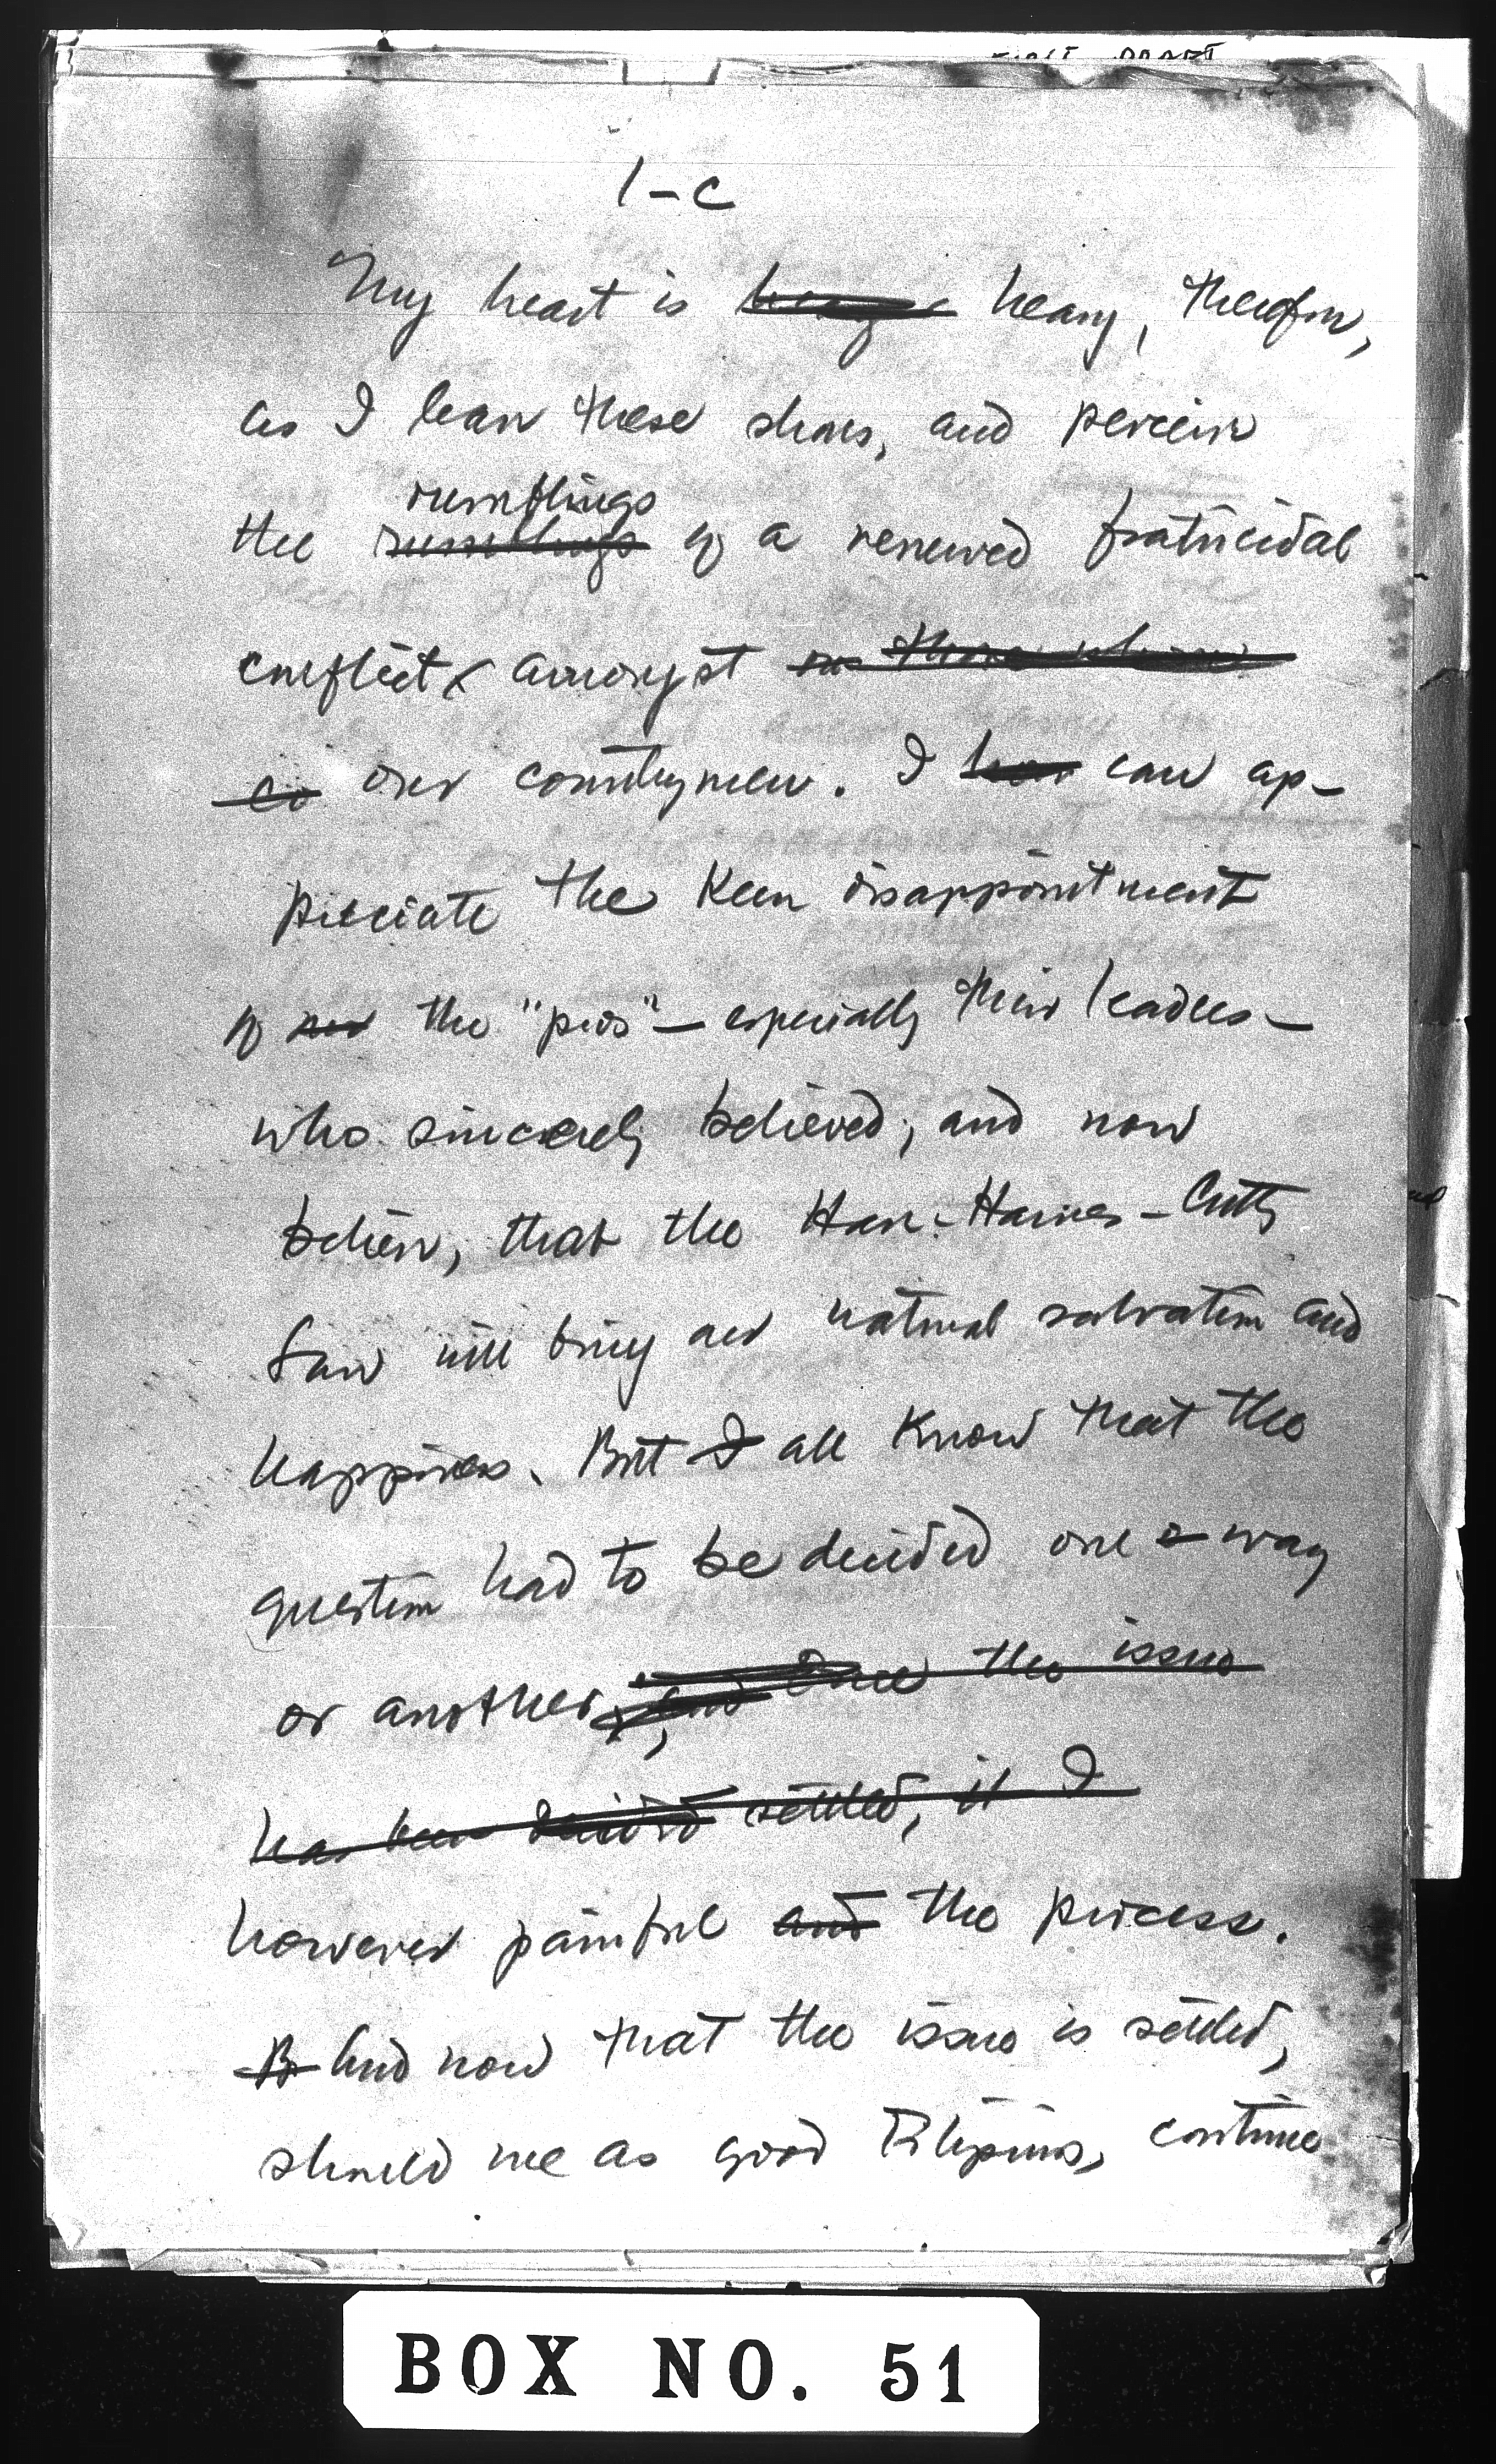 FIRST DRAFT
1-c
My heart is heavy, therefore,
as I leave these shores, and perceive
rumblings
the rumblings of a renewed fratricidal
conflict, amongst our those whom
co our countrymen. I have can ap-
preciate the keen disappointment
of the "pros" — especially their leaders —
who sincerely believed, and now
believe, that the Hare-Hawes-Cutting
Law will bring our national salvation and
happiness. But I all know that the
question had to be decided one way
or another, and once the issue
has been decided settled, it I
however painful and the process.
B And now that the issue is settled,
should we as good Filipinos, continue
BOX NO. 51